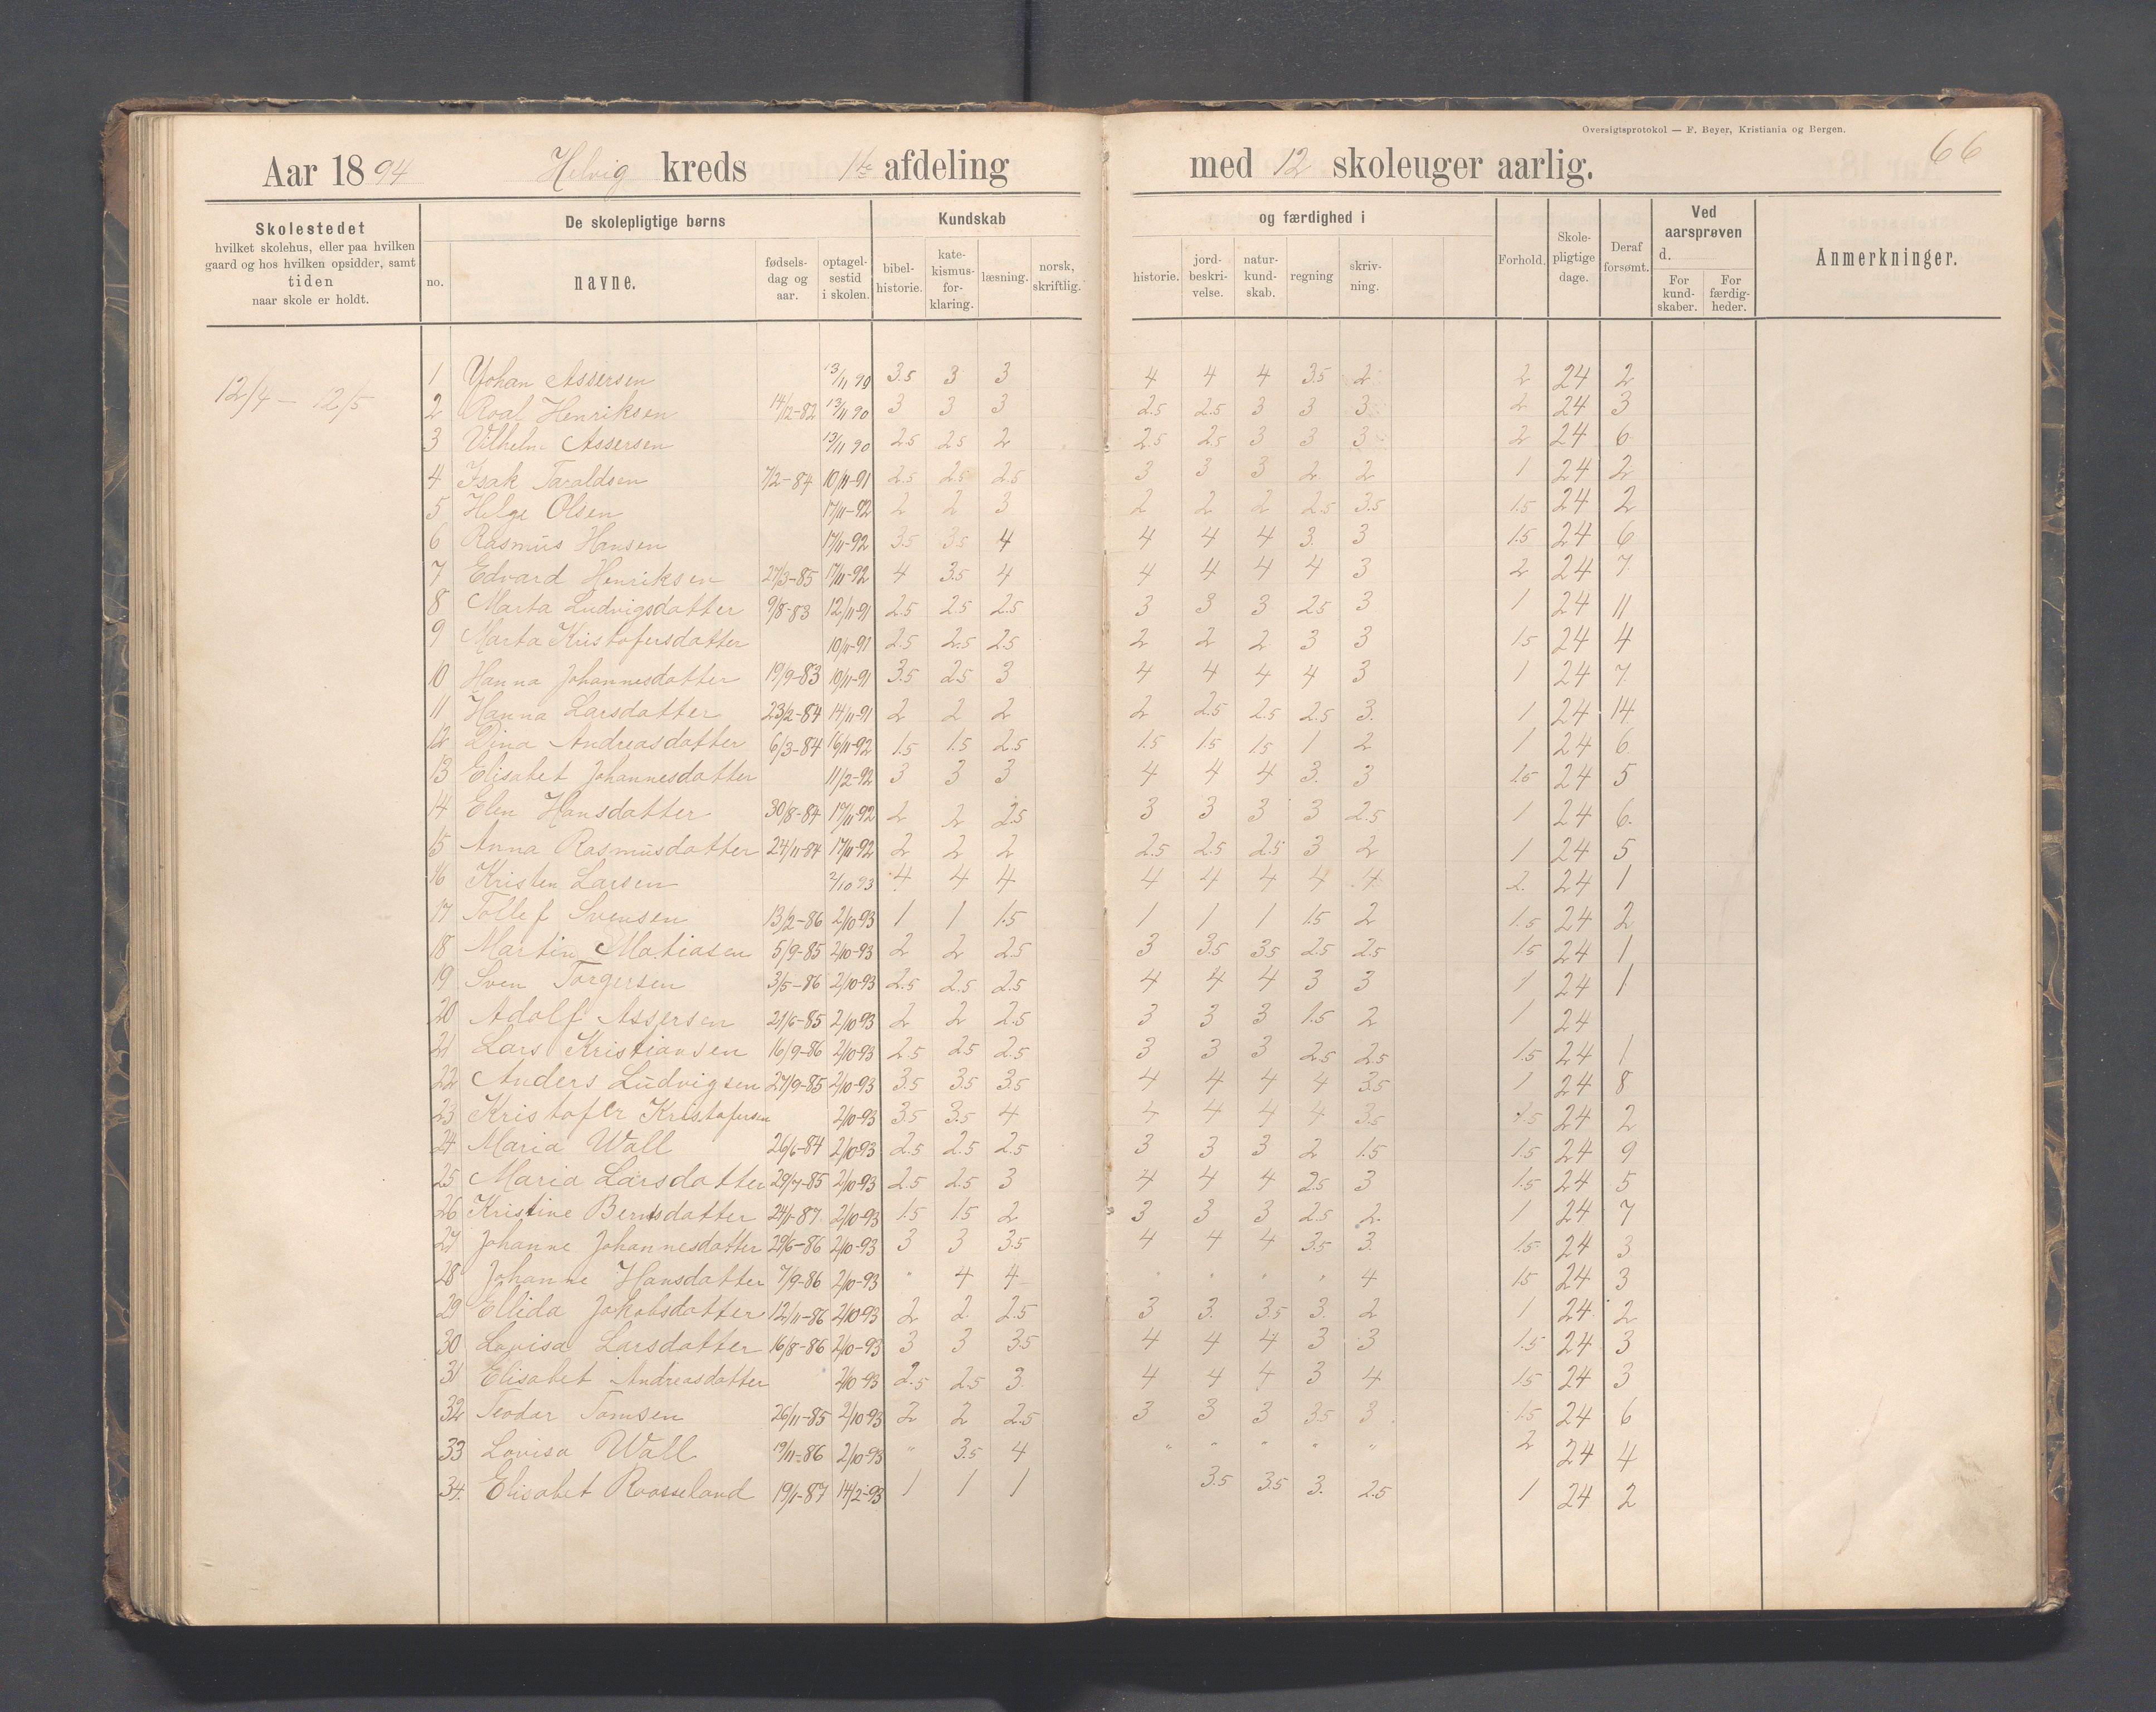 Oversigtsprotokol — F. Beyer, Kristiania og Bergen.
66
Aar 1894 Helvig kreds 1ste afdeling med 12 skoleuger aarlig.
Skolestedet hvilket skolehus, eller paa hvilken gaard og hos hvilken opsidder, samt tiden naar skole er holdt.
De skolepligtige børns
no. navne. fødselsdag og aar. optagelsestid i skolen.
Kundskab og færdighed i
bibelhistorie. katekismusforklaring. læsning. norsk, skriftlig. historie. jordbeskrivelse. naturkundskab. regning skrivning.
Forhold. Skolepligtige dage. Deraf forsømt.
Ved aarsprøven d.
For kundskaber. For færdigheder.
Anmerkninger.
12/4 – 12/5
1 Johan Assersen 13/11 90 3.5 3 3 4 4 4 3.5 2 2 24 2
2 Roal Henriksen 14/12-82 13/11 90 3 3 3 2.5 2.5 3 3 3 2 24 3
3 Vilhelm Assersen 13/11 90 2.5 2.5 2 2.5 2.5 3 3 3 2 24 6
4 Isak Taraldsen 7/2-84 10/11-91 2.5 2.5 2.5 3 3 3 2 2 1 24 2
5 Helge Olsen 17/11-92 2 2 3 2 2 2 2.5 3.5 1.5 24 2
6 Rasmus Hansen 17/11-92 3.5 3.5 4 4 4 4 3. 3 1.5 24 6
7 Edvard Henriksen 27/3-85 17/11-92 4 3.5 4 4 4 4 4 3 2 24 7
8 Marta Ludvigsdatter 9/8-83 12/11-91 2.5 2.5 2.5 3 3 3 2.5 3 1 24 11
9 Marta Kristofersdatter 10/11-91 2.5 2.5 2.5 2 2 2 3 3 1.5 24 4
10 Hanna Johannesdatter 19/9-83 10/11-91 3.5 2.5 3 4 4 4 4 3 1 24 7
11 Hanna Larsdatter 23/2-84 14/11-91 2 2 2 2 2.5 2.5 2.5 3. 1 24 14
12 Dina Andreasdatter 6/3-84 16/11-92 1.5 1.5 2.5 1.5 1.5 1.5 1 2 1 24 6
13 Elisabet Johannesdatter 11/2-92 3 3 3 4 4 4 3. 3 1.5 24 5
14 Elen Hansdatter 30/8-84 17/11-92 2 2 2.5 3 3 3 3 2.5 1 24 6.
15 Anna Rasmusdatter 24/11-84 17/11-92 2 2 2 2.5 2.5 2.5 3 2 1 24 5
16 Kristen Larsen 2/10 93 4 4 4 4 4 4 4 4 2. 24 1
17 Tollef Svensen 13/2-86 2/10-93 1 1 1.5 1 1 1 1.5 2 1.5 24 2
18 Martin Matiasen 5/9-85 2/10-93 2 2 2.5 3 3.5 3.5 2.5 2.5 1.5 24 1
19 Sven Torgersen 3/5-86 2/10-93 2.5 2.5 2.5 4 4 4 3 3 1 24 1
20 Adolf Assersen 21/6-85 2/10-93 2 2 2.5 3 3 3 1.5 2 1 24
21 Lars Kristiansen 16/9-86 2/10-93 2.5 2.5 2.5 3 3 3 2.5 2.5 1.5 24 1
22 Anders Ludvigsen 27/9-85 2/10-93 3.5 3.5 3.5 4 4 4 4 3.5 1 24 8
23 Kristofer Kristofersen 2/10-93 3.5 3.5 4 4 4 4 4 3.5 1.5 24 2
24 Maria Wall 26/6-84 2/10-93 2.5 2.5 2.5 3 3 3 2 1.5 1.5 24 9
25 Maria Larsdatter 29/7-85 2/10-93 2.5 2.5 3 4 4 4 2.5 3 1.5 24 5
26 Kristine Berntsdatter 24/1-87 2/10-93 1.5 1.5 2 3 3 3 2.5 2. 1 24 7
27 Johanne Johannesdatter 29/6-86 2/10-93 3 3 3.5 4 4 4 3.5 3. 1.5 24 3
28 Johanne Hansdatter 7/9-86 2/10-93 " 4 4 " " " " 4 1.5 24 3
29 Ellida Jakobsdatter 12/11-86 2/10-93 2 2. 2.5 3 3. 3.5 3. 2 1 24 2
30 Lovisa Larsdatter 16/8-86 2/10-93 3 3 3.5 4 4 4 3 3 1.5 24 3
31 Elisabet Andreasdatter 2/10-93 2.5 2.5 3 4 4 4 3 4 1.5 24 3
32 Teodor Tomsen 26/11-85 2/10-93 2 2 2.5 3 3 3 3.5 3 1.5 24 6
33 Lovisa Wall 19/11-86 2/10-93 " 3.5 4 " " " " " 2 24 4
34. Elisabet Raasseland 19/1-87 14/2-93 1 1 1 3.5 3.5 3. 2.5 1 24 2